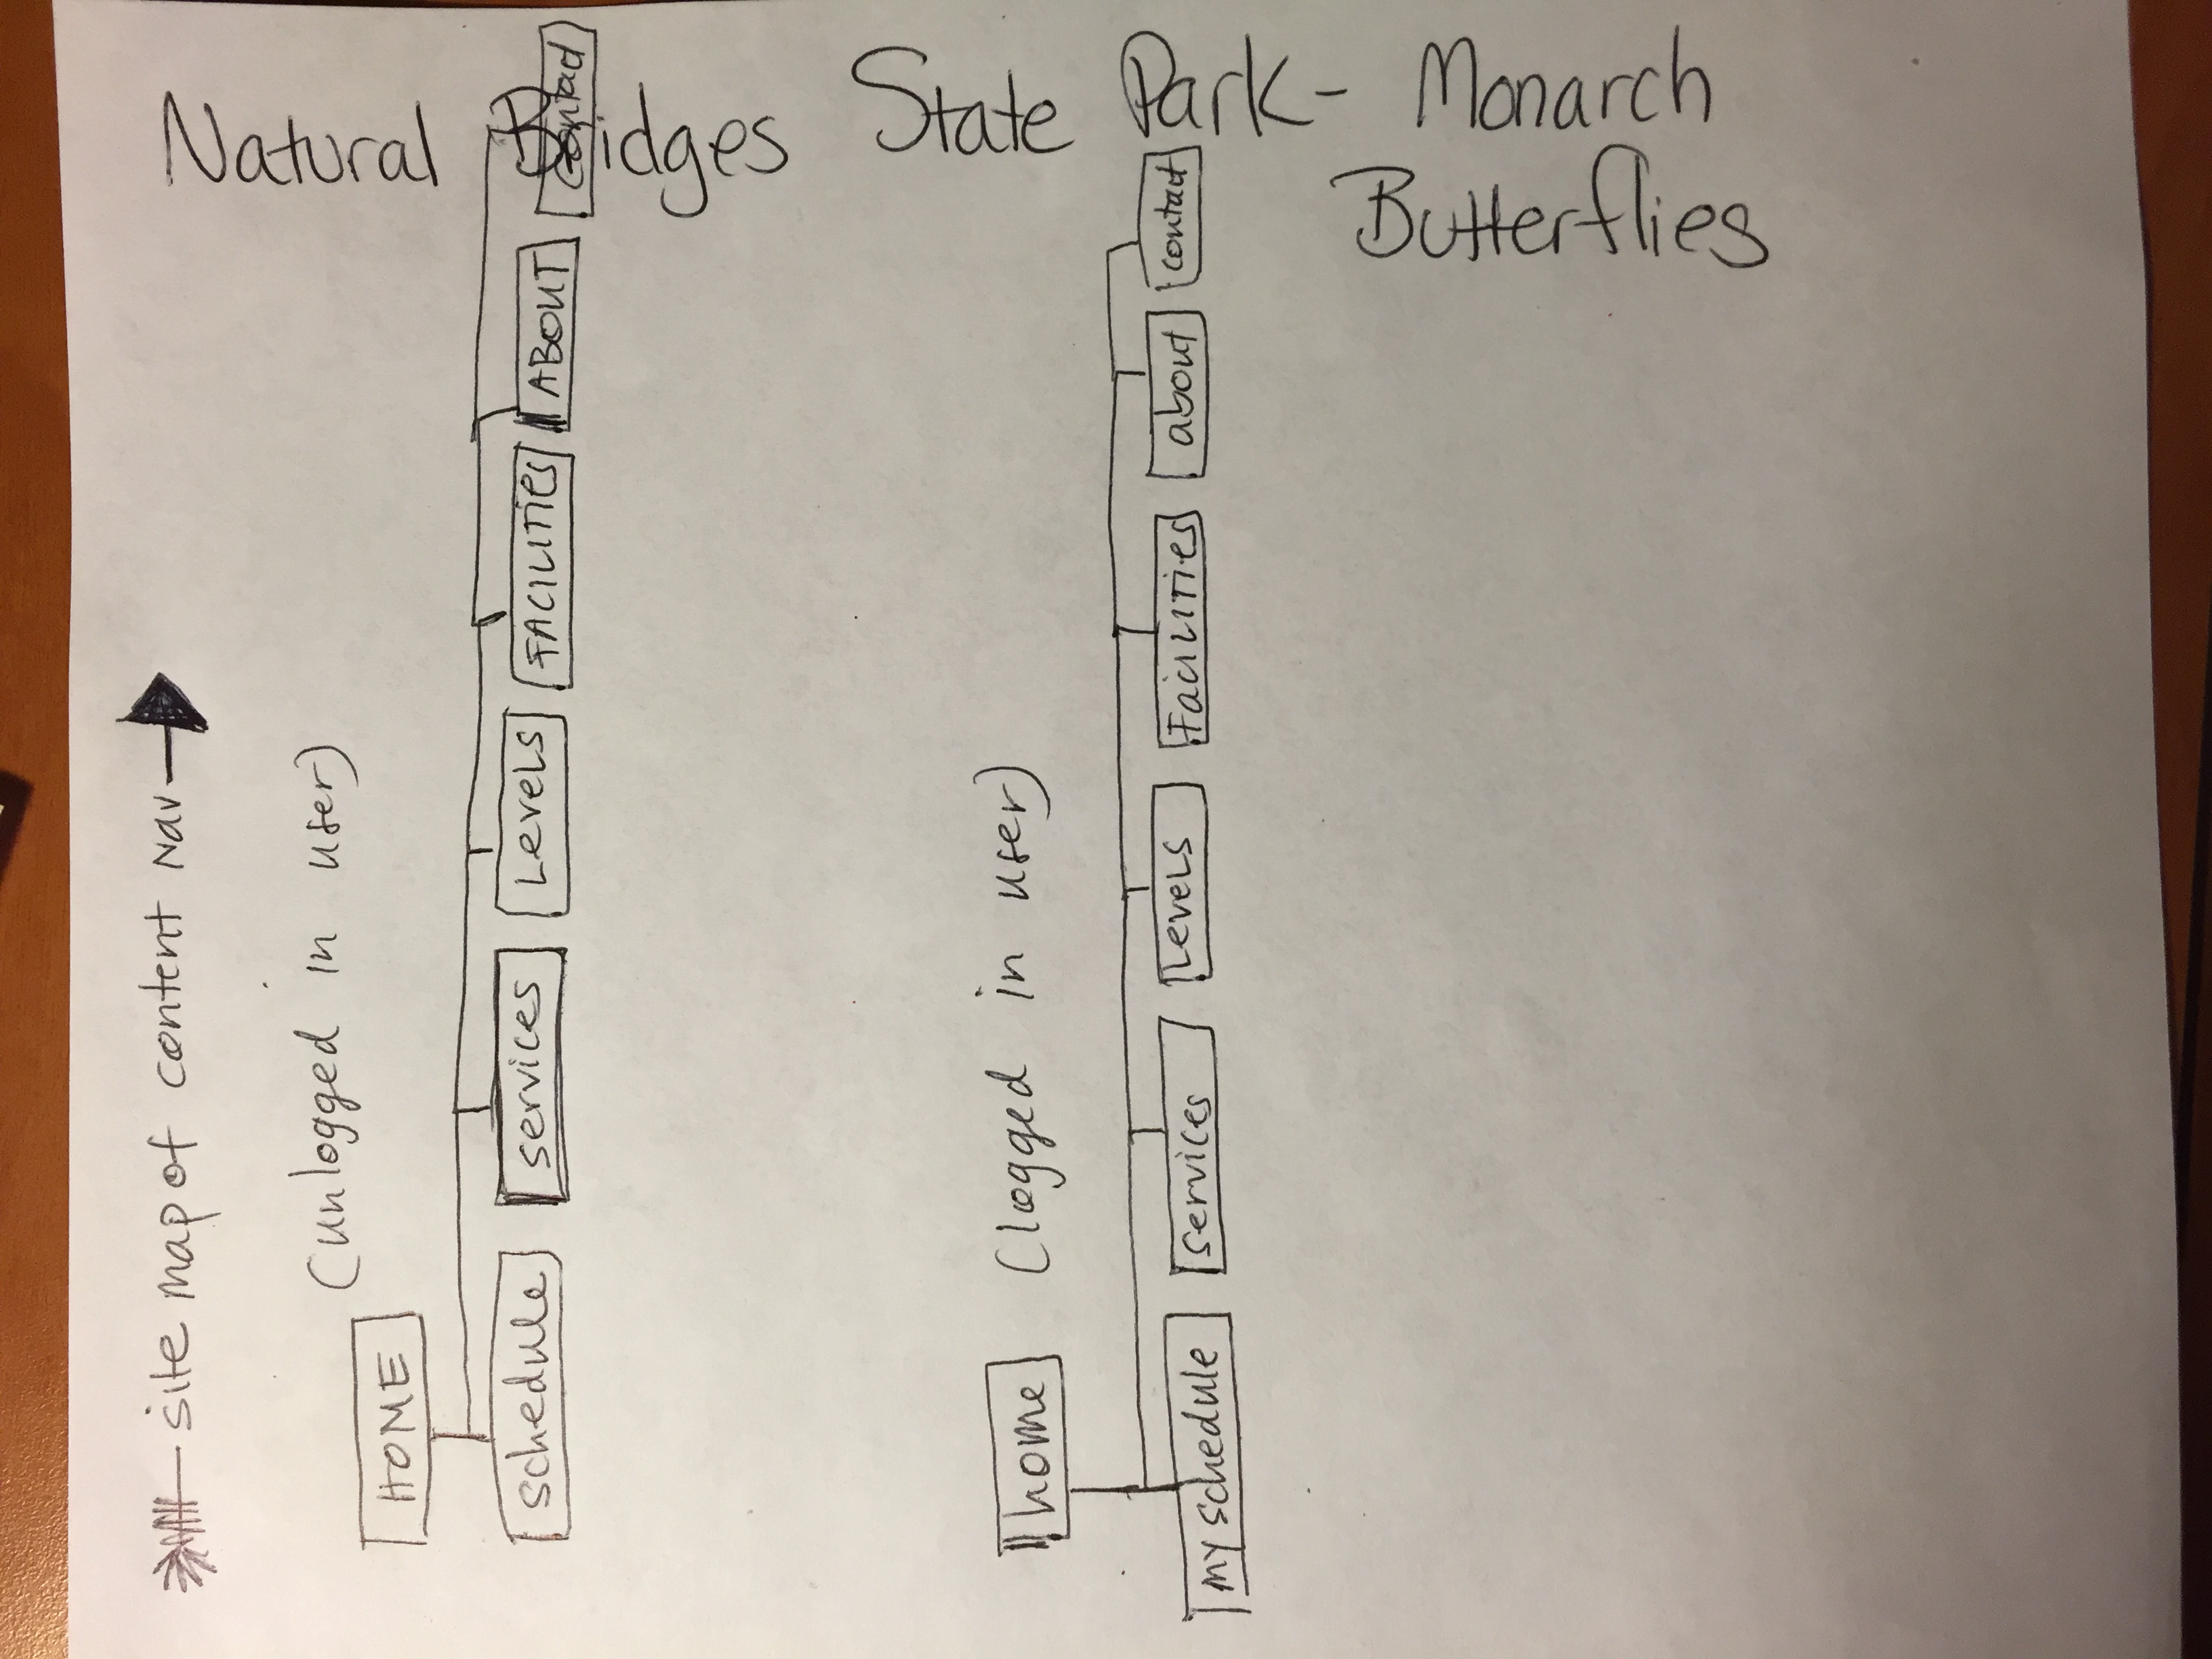 site map of content Nav
(unlogged in user)
HOME
schedule services Levels FACILITIES ABOUT Contact
home (logged in user)
my schedule services Levels Facilities about contact
Natural Bridges State Park - Monarch
Butterflies